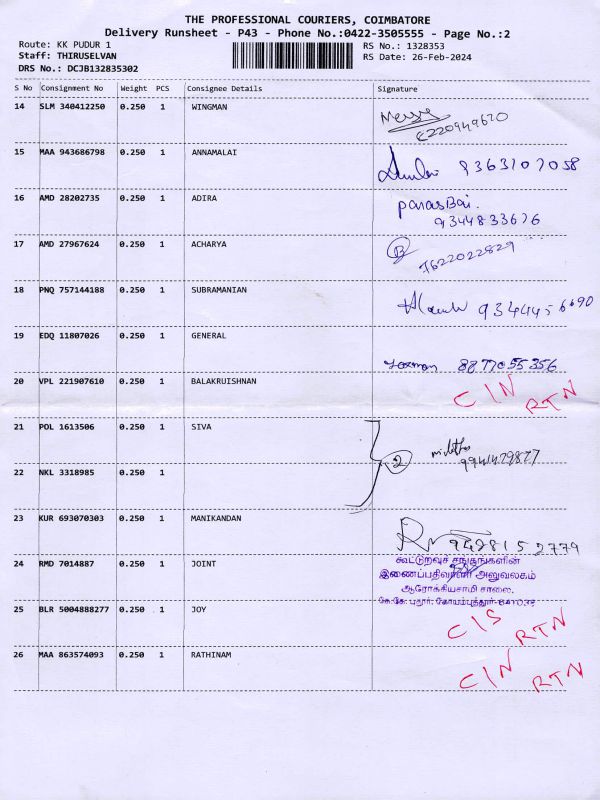 THE PROFESSIONAL COURIERS, COIMBATORE
Delivery Runsheet - P43 - Phone No.:0422-3505555 - Page No.:2
Route: KK PUDUR 1
RS No.: 1328353
Staff: THIRUSELVAN
RS Date: 26-Feb-2024
DRS No.: DCJB132835302
S No Consignment No Weight PCS Consignee Details Signature
14 SLM 340412250 0.250 1 WINGMAN
15 MAA 943686798 0.250 1 ANNAMALAI 9363107058
16 AMD 28202735 0.250 1 ADIRA ParasBai.
9344833676
17 AMD 27967624 0.250 1 ACHARYA
7622022829
18 PNQ 757144188 0.250 1 SUBRAMANIAN 9344456690
19 EDQ 11807026 0.250 1 GENERAL
8877055356
20 VPL 221907610 0.250 1 BALAKRUISHNAN C/N RTN
21 POL 1613506 0.250 1 SIVA
2
22 NKL 3318985 0.250 1
23 KUR 693070303 0.250 1 MANIKANDAN
9428152779
24 RMD 7014887 0.250 1 JOINT கூட்டுறவுச் சங்கங்களின்
இணைப்பதிவாளர் அலுவலகம்
ஆரோக்கியசாமி சாலை,
கே.கே. புதூர், கோயம்புத்தூர்-641038
25 BLR 5004888277 0.250 1 JOY C/S RTN
26 MAA 863574093 0.250 1 RATHINAM C/N RTN